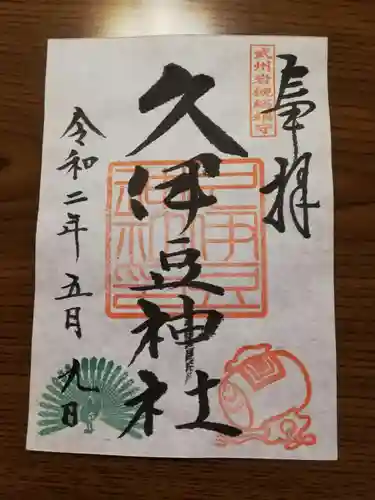 奉拝
武州岩槻総鎮守
久伊豆神社
久伊豆神社印
令和二年五月九日